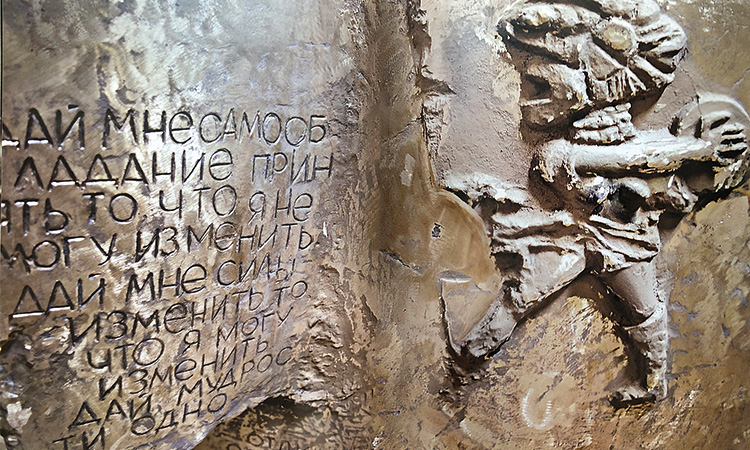 ДАЙ МНЕ САМООБ
ЛАДАНИЕ ПРИН
ЯТЬ ТО ЧТО Я НЕ
МОГУ ИЗМЕНИТЬ
ДАЙ МНЕ СИЛЫ
ИЗМЕНИТЬ ТО
ЧТО Я МОГУ
ИЗМЕНИТЬ
ДАЙ МУДРОС
ТИ ОДНО